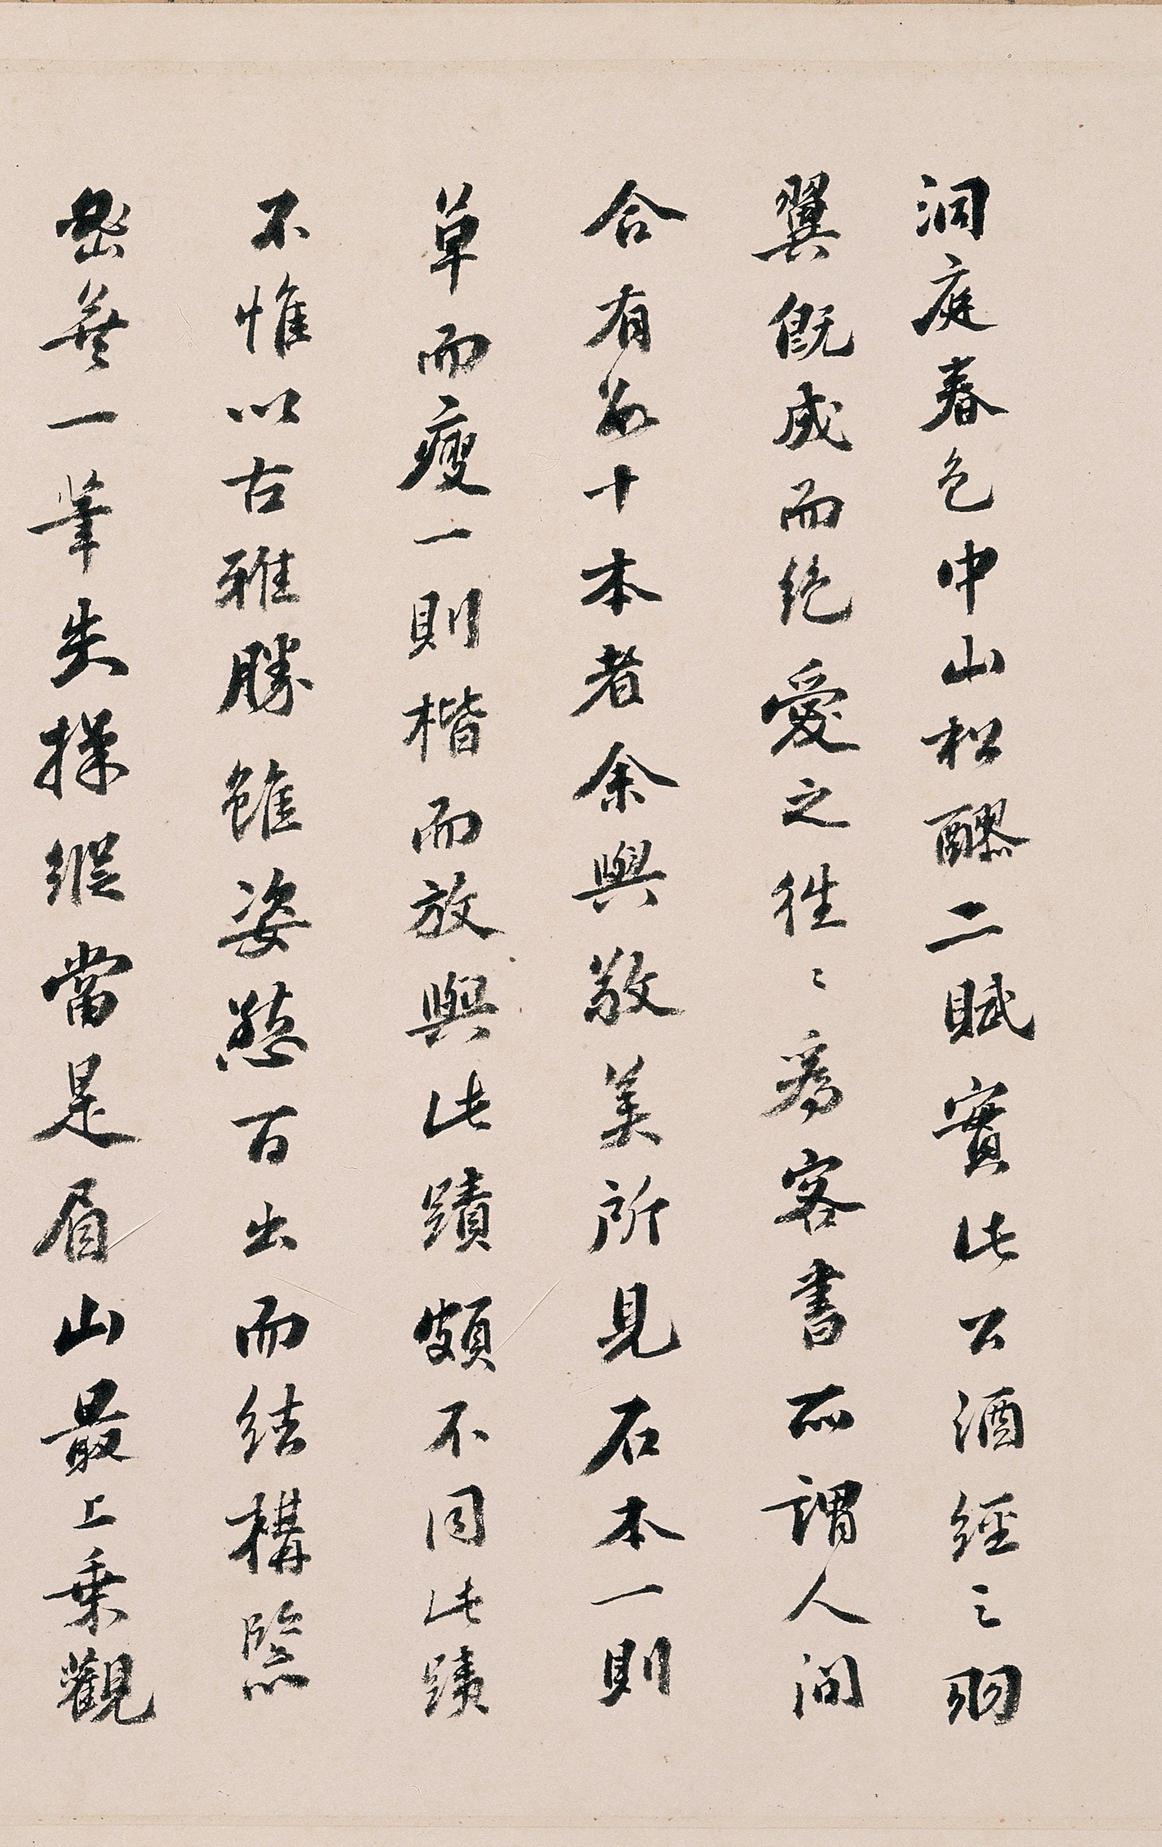 洞庭春色中山松醪二賦實此公酒經之羽
翼既成而絕愛之往〻爲客書所謂人間
合有數十本者余與敬美所見石本一則
草而瘦一則楷而放與此蹟頗不同此蹟
不惟以古雅勝雖姿態百出而結構緊
密無一筆失操縱當是眉山最上乗觀